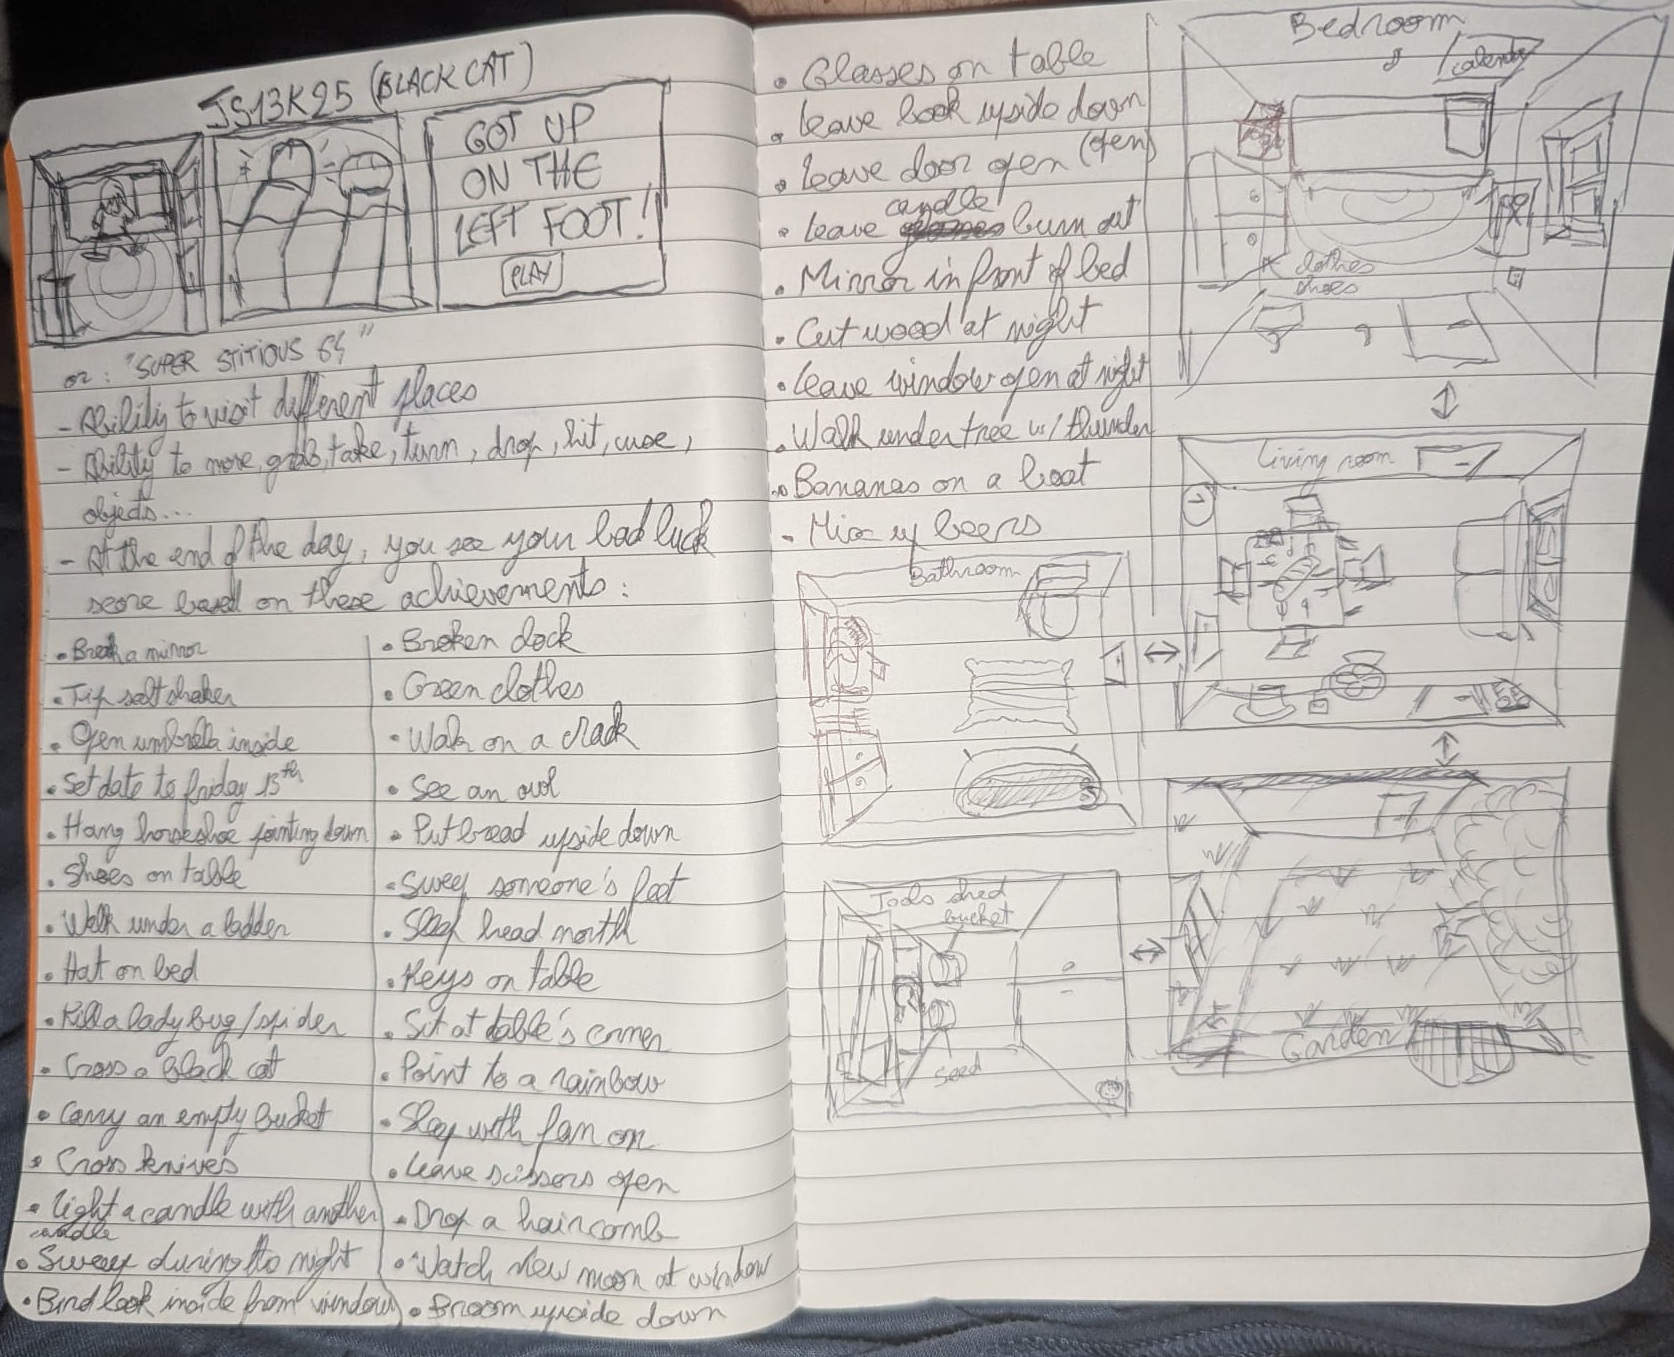 JS13K25 (BLACK CAT)
GOT UP
ON THE
LEFT FOOT!
PLAY
or: "SUPER STITIOUS 64"
- Ability to visit different places
- Ability to move, grab, take, turn, drop, hit, use,
objects...
- At the end of the day, you see your bad luck
score based on these achievements:
• Break a mirror
• Tip salt shaker
• Open umbrella inside
• Set date to friday 13th
• Hang horseshoe pointing down
• Shoes on table
• Walk under a ladder
• Hat on bed
• Kill a lady bug/spider
• Cross a black cat
• Carry an empty bucket
• Cross knives
• light a candle with another
candle
• Sweep during the night
• Bird look inside from window
• Broken clock
• Green clothes
• Walk on a crack
• See an owl
• Put bread upside down
• Sweep someone's feet
• Sleep head north
• Keys on table
• Sit at table's corner
• Point to a rainbow
• Sleep with fan on
• leave scissors open
• Drop a haircomb
• Watch new moon at window
• Broom upside down
• Glasses on table
• leave book upside down
(open)
• leave door open
candle
• leave burn out
• Mirror in front of bed
• Cut wood at night
• leave window open at night
• Walk under tree w/ thunder
• Bananas on a boat
- Mix up beers
Bedroom
calendar
clothes
shoes
Living room
Bathroom
Tools shed
bucket
seed
Garden